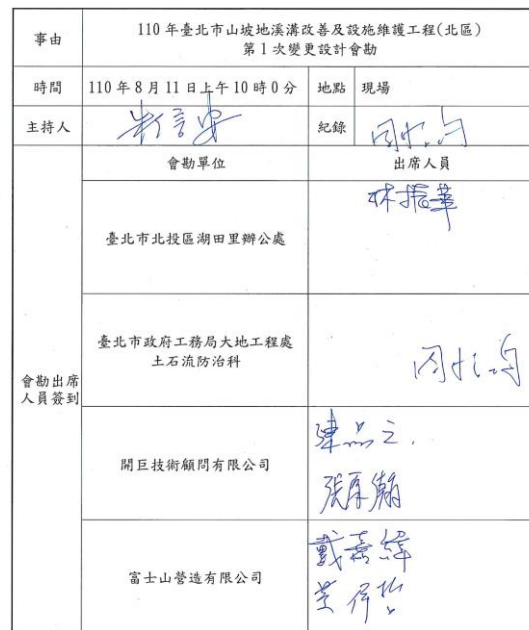 事由
110年臺北市山坡地溪溝改善及設施維護工程(北區)
第1次變更設計會勘
時間 110年8月11日上午10時0分 地點 現場
主持人 紀錄
會勘單位 出席人員
會勘出席
人員簽到
臺北市北投區湖田里辦公處 林振華
臺北市政府工務局大地工程處
土石流防治科
開巨技術顧問有限公司
陳品之.
富士山營造有限公司
戴嘉緯